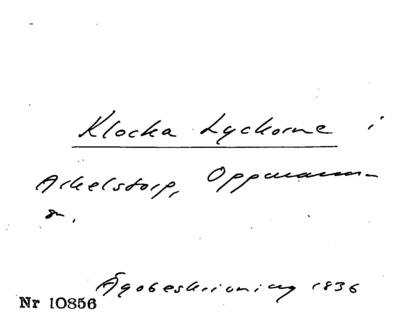 Klocka Lyckorne i
Arkelstorp, Oppmanna
s.
Ägobeskrivning 1836
Nr 10856